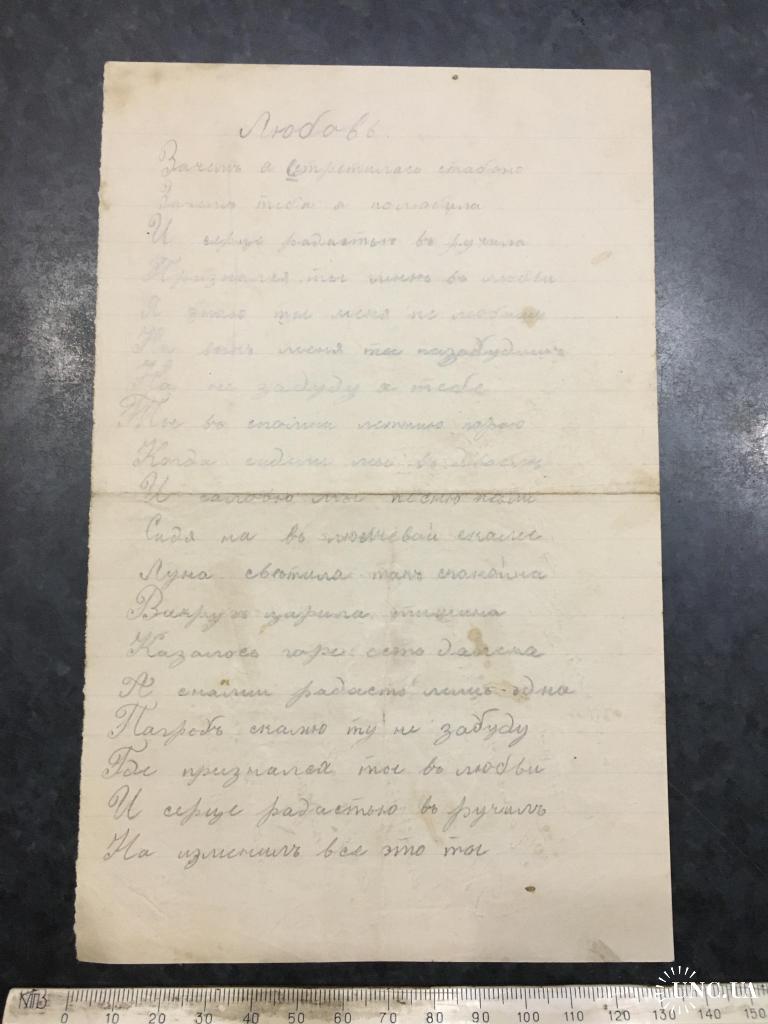 Любовь.
Зачемъ я встретилась стабою
Зачемъ тебя я полюбила
И серце радастью въ ручила
Признался ты мнѣ въ любви
Я знаю ты меня не любишь
На векъ меня ты пазабудишь
На не забуду я тебе
Ты въ спомни летнию пору
Когда сидели мы въ
И саловю мы песню пели
Сидя на въ любчевай скамье
Луна светила такъ спакойна
Вакругъ царила тишина
Казалось горе есть далека
А снами радасть лишь одна
Пагробъ скамю ту не забуду
Где признался ты въ любви
И серце радастью въ ручилъ
На изменилъ все это ты
КПЗ
0 10 20 30 40 50 60 70 80 90 100 110 120 130 140 150
UNC.UA